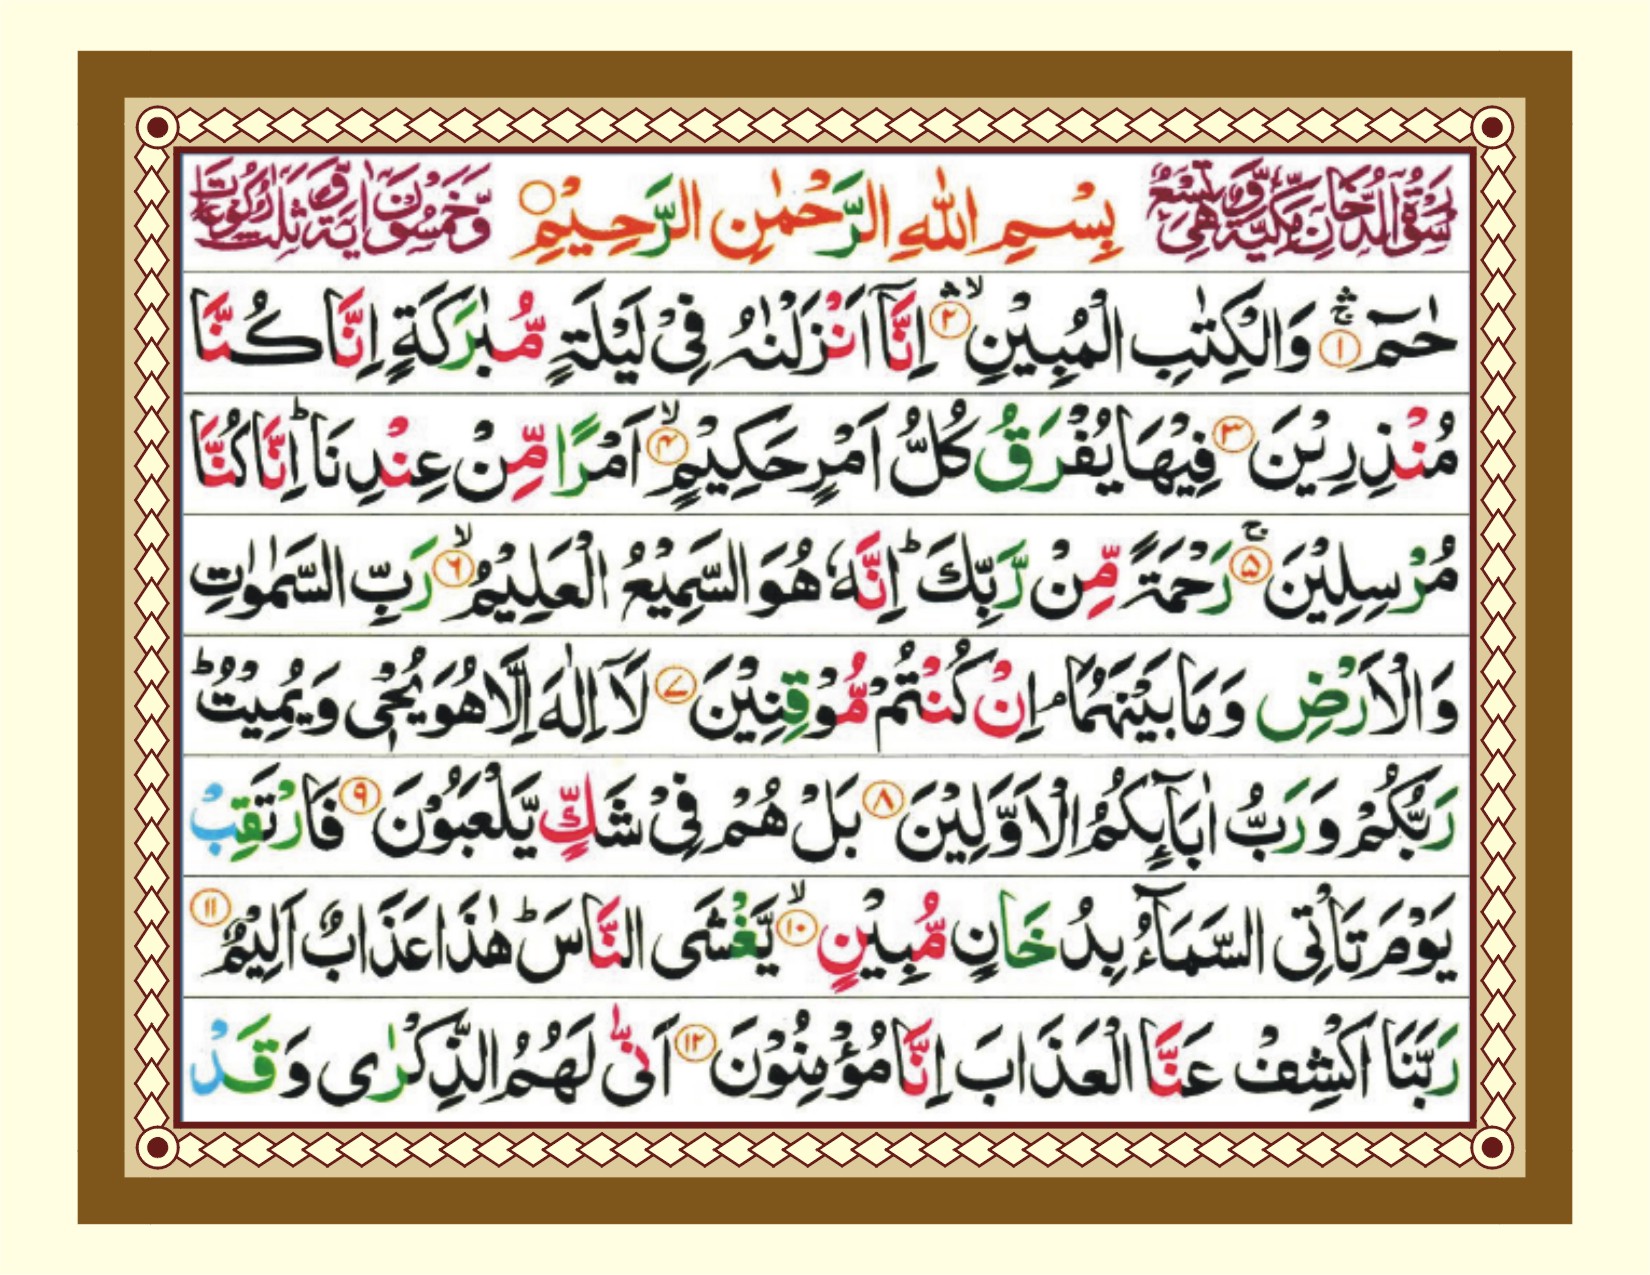 سُوْرَةُ الدُّخَانِ مَكِّيَّةٌ وَّهِيَ تِسْعٌ بِسْمِ اللّٰهِ الرَّحْمٰنِ الرَّحِيْمِ ○ وَّخَمْسُوْنَ اٰيَةً وَّثَلٰثُ رُكُوْعَاتٍ
حٰمٓ ۚۛ ﴿۱﴾ وَالْكِتٰبِ الْمُبِيْنِ ۙۛ ﴿۲﴾ اِنَّاۤ اَنْزَلْنٰهُ فِيْ لَيْلَةٍ مُّبٰرَكَةٍ اِنَّا كُنَّا
مُنْذِرِيْنَ ﴿۳﴾ فِيْهَا يُفْرَقُ كُلُّ اَمْرٍ حَكِيْمٍ ۙ ﴿۴﴾ اَمْرًا مِّنْ عِنْدِنَا ؕ اِنَّا كُنَّا
مُرْسِلِيْنَ ۚ ﴿۵﴾ رَحْمَةً مِّنْ رَّبِّكَ ؕ اِنَّهٗ هُوَ السَّمِيْعُ الْعَلِيْمُ ۙ ﴿۶﴾ رَبِّ السَّمٰوٰتِ
وَالْاَرْضِ وَمَا بَيْنَهُمَا ۘ اِنْ كُنْتُمْ مُّوْقِنِيْنَ ﴿۷﴾ لَاۤ اِلٰهَ اِلَّا هُوَ يُحْيٖ وَيُمِيْتُ ؕ
رَبُّكُمْ وَرَبُّ اٰبَآئِكُمُ الْاَوَّلِيْنَ ﴿۸﴾ بَلْ هُمْ فِيْ شَكٍّ يَّلْعَبُوْنَ ﴿۹﴾ فَارْتَقِبْ
يَوْمَ تَاْتِي السَّمَآءُ بِدُخَانٍ مُّبِيْنٍ ۙ ﴿۱۰﴾ يَّغْشَى النَّاسَ ؕ هٰذَا عَذَابٌ اَلِيْمٌ ﴿۱۱﴾
رَبَّنَا اكْشِفْ عَنَّا الْعَذَابَ اِنَّا مُؤْمِنُوْنَ ﴿۱۲﴾ اَنّٰى لَهُمُ الذِّكْرٰى وَقَدْ